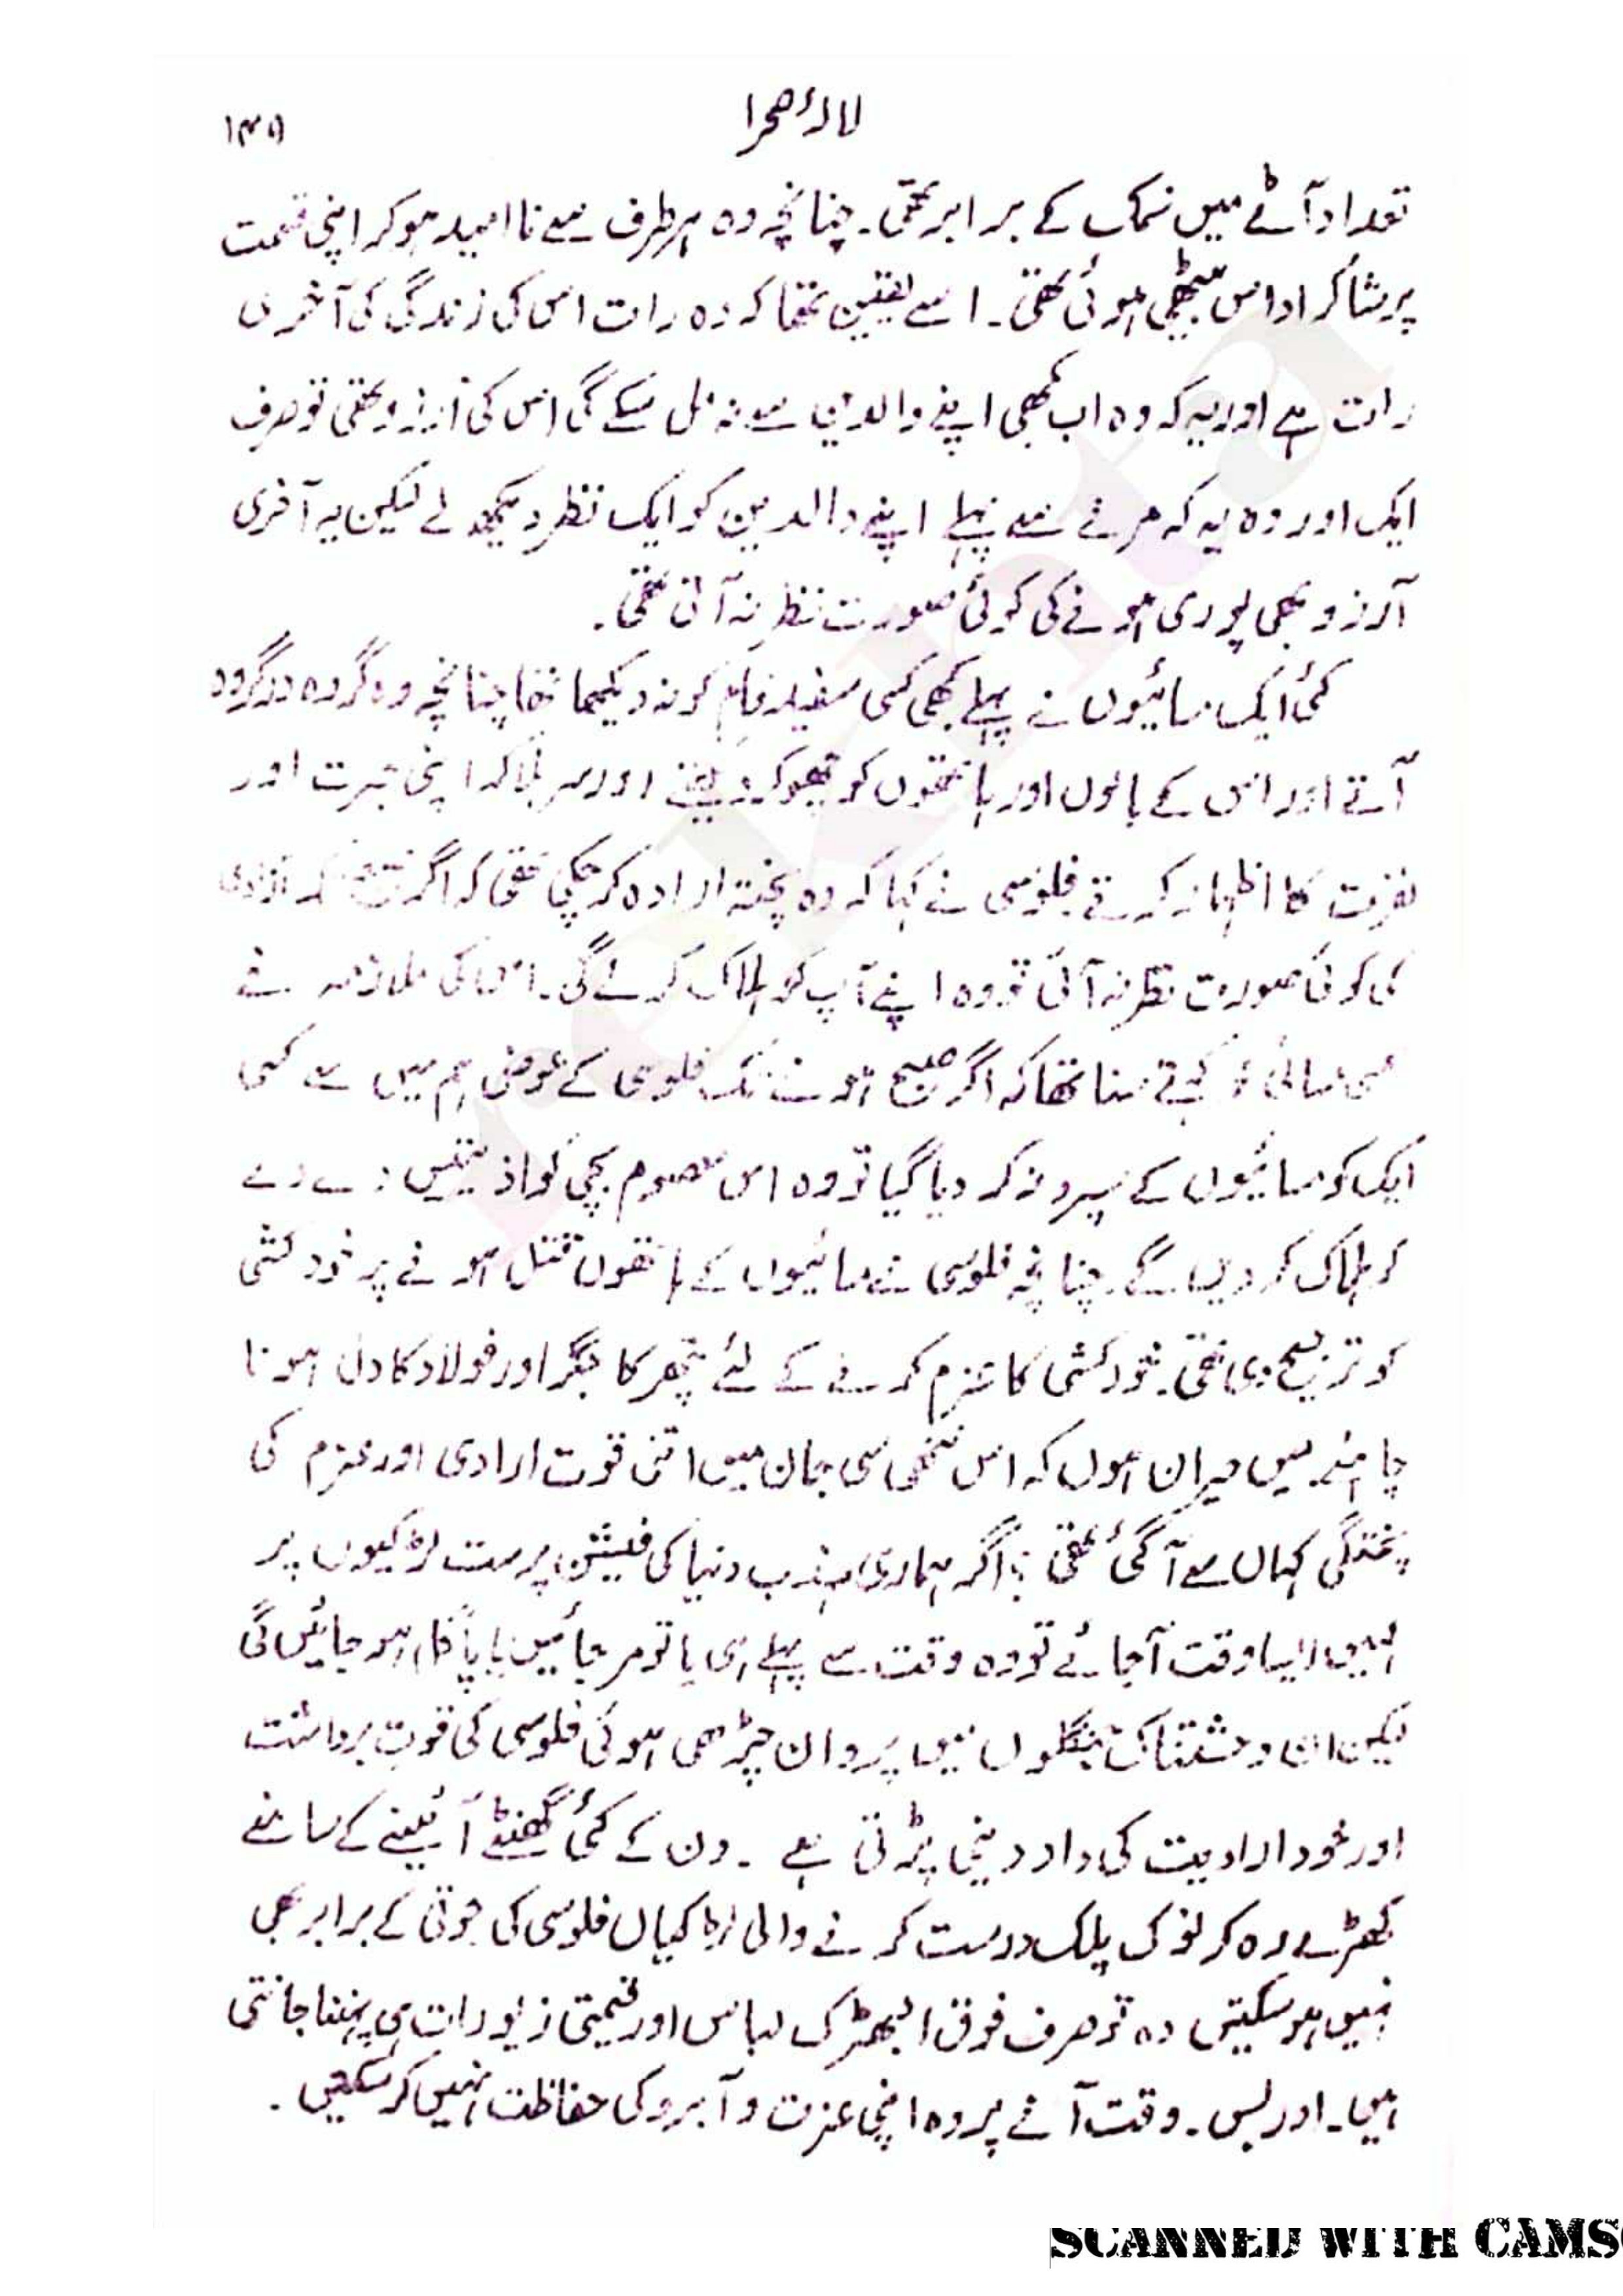 لالۂ صحرا
۱۳۵
تعداد آٹے میں نمک کے برابر تھی۔ چنانچہ وہ ہر طرف سے نا امید ہو کر اپنی قسمت
پر شاکر اداس بیٹھی ہوئی تھی۔ اسے یقین تھا کہ وہ رات اس کی زندگی کی آخری
رات ہے اور یہ کہ وہ اب کبھی اپنے والدین سے نہ مل سکے گی اس کی آرزو تھی تو صرف
ایک اور وہ یہ کہ مرنے سے پہلے اپنے والدین کو ایک نظر دیکھ لے لیکن یہ آخری
آرزو بھی پوری ہونے کی کوئی صورت نظر نہ آتی تھی۔
کئی ایک سائیوں نے پہلے کبھی کسی سفید فام کو نہ دیکھا تھا چنانچہ وہ گروہ در گروہ
آتے اور اس کے بالوں اور ہاتھوں کو چھو کر دیکھتے اور سر ہلا کر اپنی حیرت اور
نفرت کا اظہار کرتے فلوسی نے کہا کہ وہ پختہ ارادہ کر چکی تھی کہ اگر صبح تک آزادی
کی کوئی صورت نظر نہ آئی تو وہ اپنے آپ کو ہلاک کر لے گی۔ اس کی ملازمہ نے
کسی سائی کو کہتے سنا تھا کہ اگر صبح ہونے تک فلوسی کے عوض ہم میں سے کسی
ایک کو سائیوں کے سپرد نہ کر دیا گیا تو وہ اس معصوم بچی کو اذیتیں دے دے
کر ہلاک کر دیں گے۔ چنانچہ فلوسی نے سائیوں کے ہاتھوں قتل ہونے پر خودکشی
کو ترجیح دی تھی۔ خودکشی کا عزم کرنے کے لئے پتھر کا جگر اور فولاد کا دل ہونا
چاہئے۔ میں حیران ہوں کہ اس ننھی سی جان میں اتنی قوت ارادی اور عزم کی
پختگی کہاں سے آ گئی تھی؟ اگر ہماری مہذب دنیا کی فیشن پرست لڑکیوں پر
کہیں ایسا وقت آ جائے تو وہ وقت سے پہلے ہی یا تو مر جائیں یا پاگل ہو جائیں گی
لیکن ان وحشتناک جنگلوں میں پروان چڑھی ہوئی فلوسی کی قوت برداشت
اور خود ارادیت کی داد دینی پڑتی ہے۔ دن کے کئی گھنٹے آئینے کے سامنے
کھڑے رہ کر نوک پلک درست کرنے والی لڑکیاں فلوسی کی جوتی کے برابر بھی
نہیں ہو سکتیں وہ تو صرف فوق البھڑک لباس اور قیمتی زیورات ہی پہننا جانتی
ہیں۔ اور بس۔ وقت آنے پر وہ اپنی عزت و آبرو کی حفاظت نہیں کر سکتیں۔
SCANNED WITH CAMS